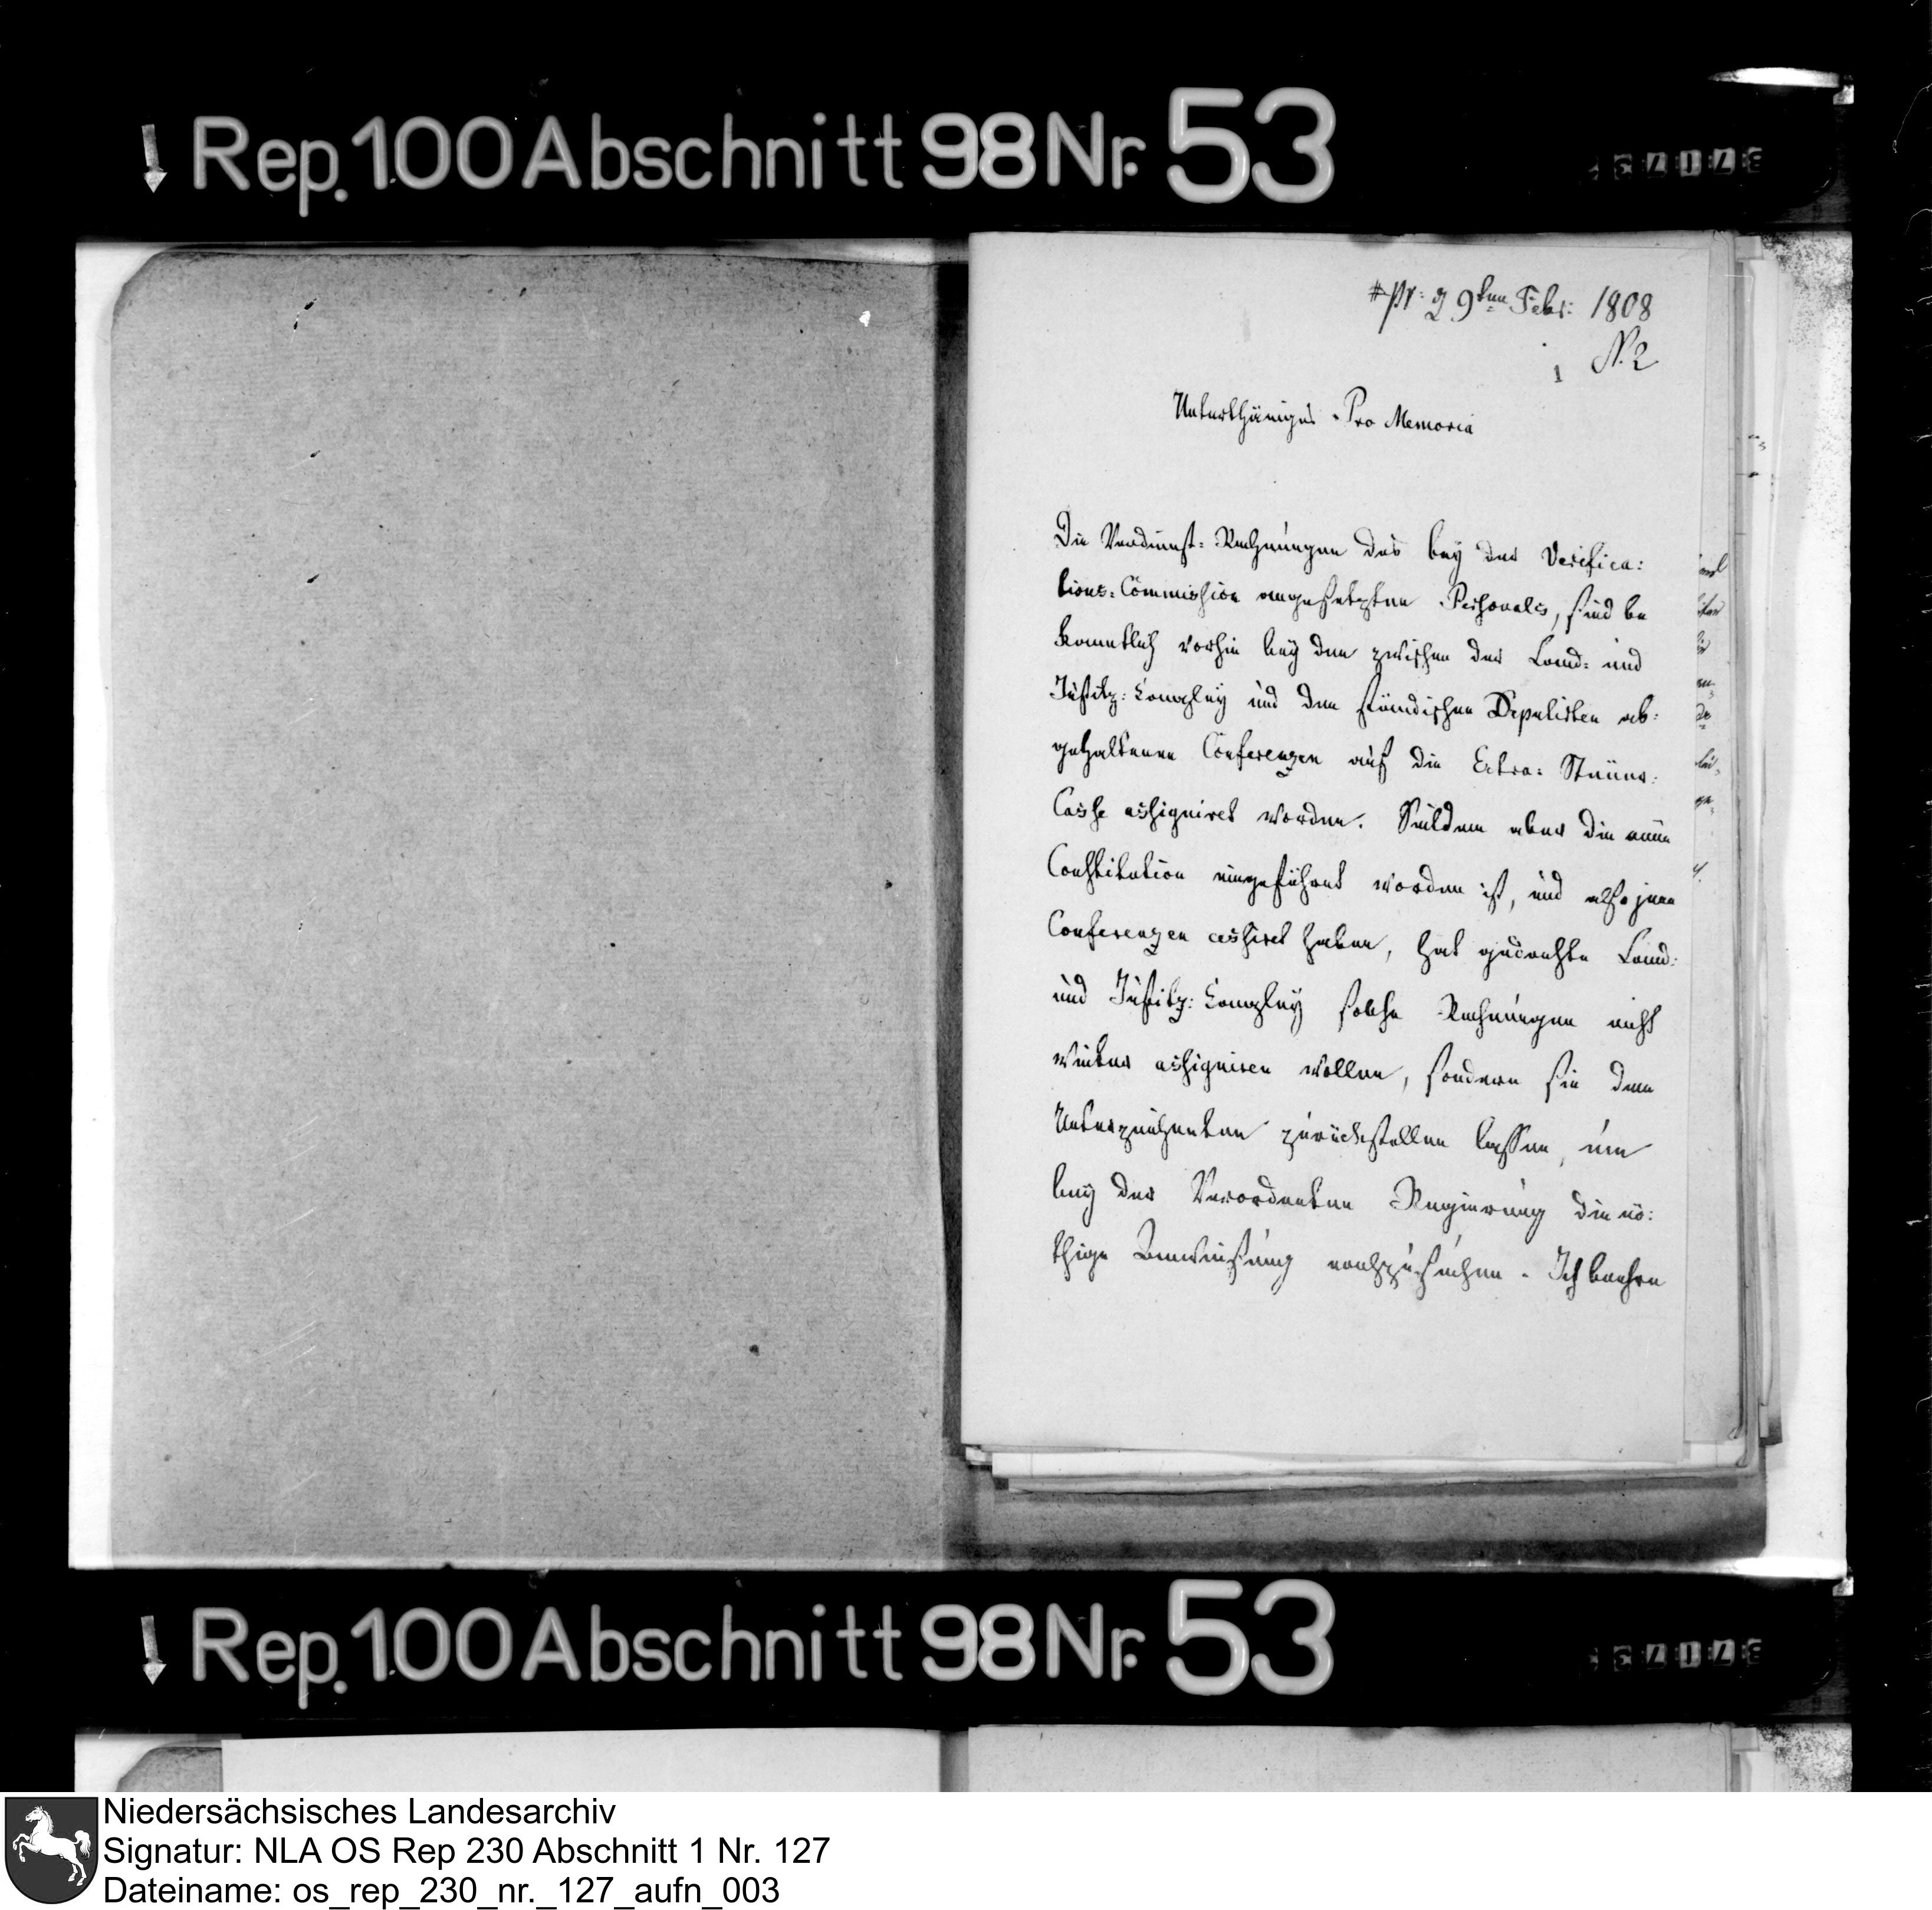 Rep. 100 Abschnitt 98 Nr. 53
pr: 29ten Febr: 1808
N. 2
1
Unterthäniges Pro Memoria
Die Verdienst-Rechnungen des bey der Verifica:
tions-Commission angesetzten Personals, sind be
kanntlich vorhin bey den zwischen der Land- und
Justitz-Canzley und den ständischen Deputirten ab:
gehaltenen Conferenzen auf die Extra-Steuer-
Casse assigniret worden. Seitdem aber die neue
Constitution eingeführet worden ist, und also jene
Conferenzen cessiret haben, hat gedachte Land-
und Justitz-Canzley solche Rechnungen nicht
weiter assigniren wollen, sondern sie dem
Unterzeichneten zurückstellen lassen, um
bey der Verordneten Regierung die nö:
thige Anweisung nachzusuchen. Ich beehre
Rep. 100 Abschnitt 98 Nr. 53
Niedersächsisches Landesarchiv
Signatur: NLA OS Rep 230 Abschnitt 1 Nr. 127
Dateiname: os_rep_230_nr._127_aufn_003